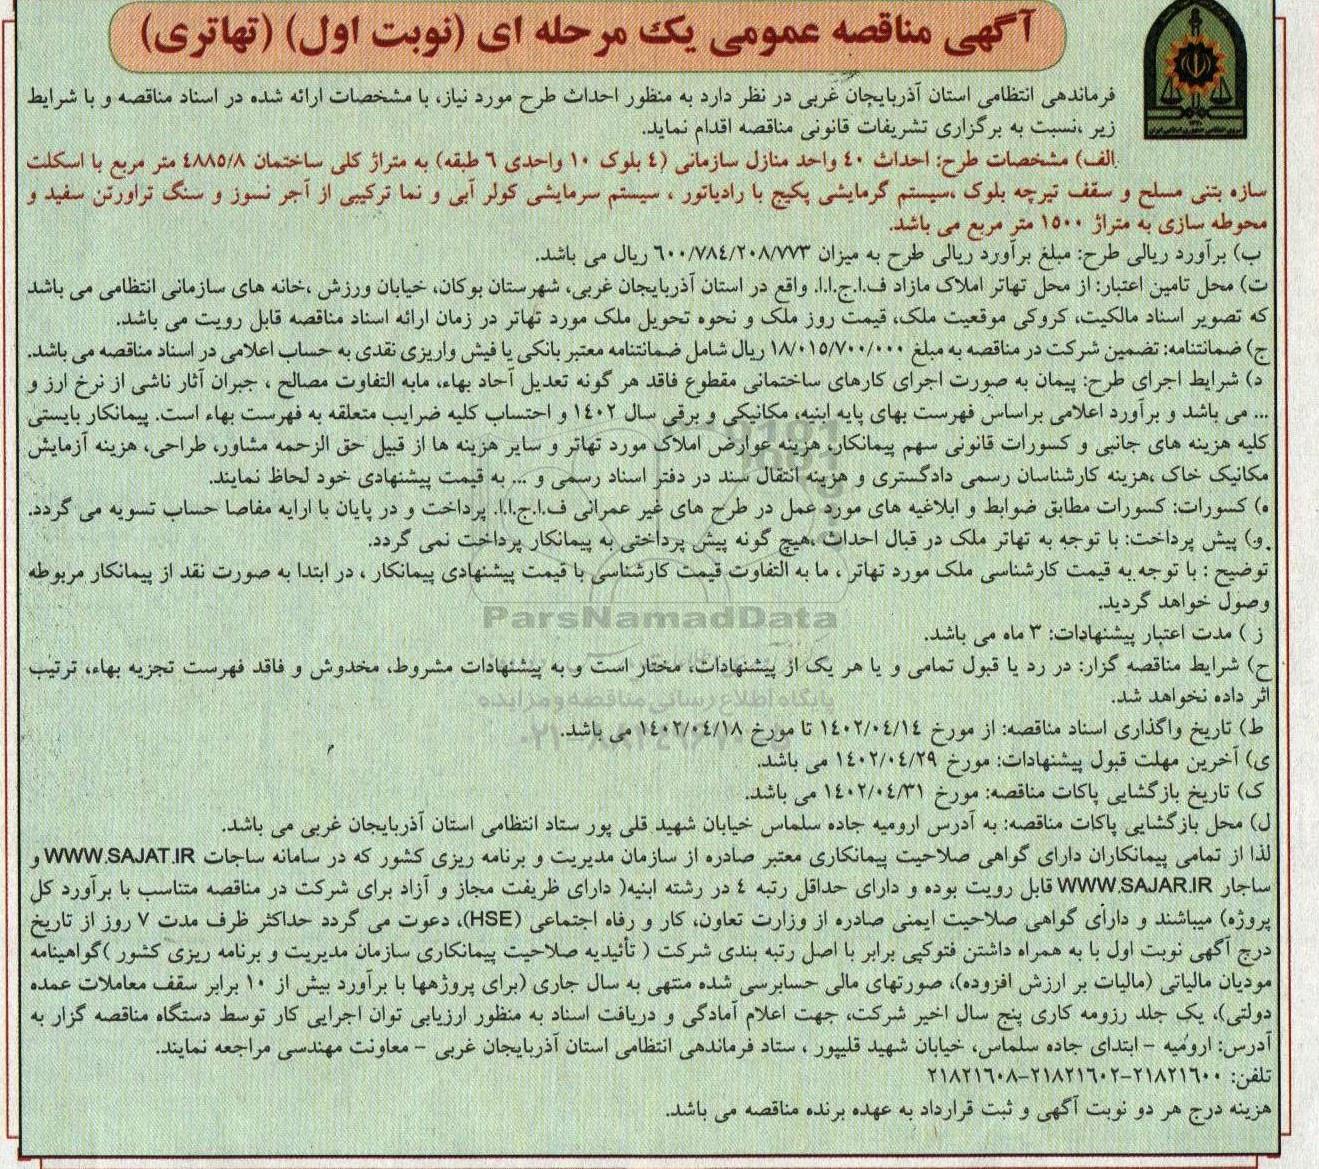 آگهی مناقصه عمومی یک مرحله ای (نوبت اول) (تهاتری)
فرماندهی انتظامی استان آذربایجان غربی در نظر دارد به منظور احداث طرح مورد نیاز، با مشخصات ارائه شده در اسناد مناقصه و با شرایط
زیر ،نسبت به برگزاری تشریفات قانونی مناقصه اقدام نماید.
الف) مشخصات طرح: احداث ۴۰ واحد منازل سازمانی (۴ بلوک ۱۰ واحدی ۶ طبقه) به متراژ کلی ساختمان ۴۸۸۵/۸ متر مربع با اسکلت
سازه بتنی مسلح و سقف تیرچه بلوک ،سیستم گرمایشی پکیج با رادیاتور ، سیستم سرمایشی کولر آبی و نما ترکیبی از آجر نسوز و سنگ تراورتن سفید و
محوطه سازی به متراژ ۱۵۰۰ متر مربع می باشد.
ب) برآورد ریالی طرح: مبلغ برآورد ریالی طرح به میزان ۶۰۰/۷۸۴/۲۰۸/۷۷۳ ریال می باشد.
ت) محل تامین اعتبار: از محل تهاتر املاک مازاد ف.ا.ج.ا.ا. واقع در استان آذربایجان غربی، شهرستان بوکان، خیابان ورزش ،خانه های سازمانی انتظامی می باشد
که تصویر اسناد مالکیت، کروکی موقعیت ملک، قیمت روز ملک و نحوه تحویل ملک مورد تهاتر در زمان ارائه اسناد مناقصه قابل رویت می باشد.
ج) ضمانتنامه: تضمین شرکت در مناقصه به مبلغ ۱۸/۰۱۵/۷۰۰/۰۰۰ ریال شامل ضمانتنامه معتبر بانکی یا فیش واریزی نقدی به حساب اعلامی در اسناد مناقصه می باشد.
د) شرایط اجرای طرح: پیمان به صورت اجرای کارهای ساختمانی مقطوع فاقد هر گونه تعدیل آحاد بهاء، مابه التفاوت مصالح ، جبران آثار ناشی از نرخ ارز و
... می باشد و برآورد اعلامی براساس فهرست بهای پایه ابنیه، مکانیکی و برقی سال ۱۴۰۲ و احتساب کلیه ضرایب متعلقه به فهرست بهاء است. پیمانکار بایستی
کلیه هزینه های جانبی و کسورات قانونی سهم پیمانکار، هزینه عوارض املاک مورد تهاتر و سایر هزینه ها از قبیل حق الزحمه مشاور، طراحی، هزینه آزمایش
مکانیک خاک ،هزینه کارشناسان رسمی دادگستری و هزینه انتقال سند در دفتر اسناد رسمی و ... به قیمت پیشنهادی خود لحاظ نمایند.
ه) کسورات: کسورات مطابق ضوابط و ابلاغیه های مورد عمل در طرح های غیر عمرانی ف.ا.ج.ا.ا. پرداخت و در پایان با ارایه مفاصا حساب تسویه می گردد.
و) پیش پرداخت: با توجه به تهاتر ملک در قبال احداث ،هیچ گونه پیش پرداختی به پیمانکار پرداخت نمی گردد.
توضیح : با توجه به قیمت کارشناسی ملک مورد تهاتر ، ما به التفاوت قیمت کارشناسی با قیمت پیشنهادی پیمانکار ، در ابتدا به صورت نقد از پیمانکار مربوطه
وصول خواهد گردید.
ParsNamadData
ز ) مدت اعتبار پیشنهادات: ۳ ماه می باشد.
ح) شرایط مناقصه گزار: در رد یا قبول تمامی و یا هر یک از پیشنهادات، مختار است و به پیشنهادات مشروط، مخدوش و فاقد فهرست تجزیه بهاء، ترتیب
اثر داده نخواهد شد.
پایگاه اطلاع رسانی مناقصه و مزایده
ط) تاریخ واگذاری اسناد مناقصه: از مورخ ۱۴۰۲/۰۴/۱۴ تا مورخ ۱۴۰۲/۰۴/۱۸ می باشد.
ی) آخرین مهلت قبول پیشنهادات: مورخ ۱۴۰۲/۰۴/۲۹ می باشد.
ک) تاریخ بازگشایی پاکات مناقصه: مورخ ۱۴۰۲/۰۴/۳۱ می باشد.
ل) محل بازگشایی پاکات مناقصه: به آدرس ارومیه جاده سلماس خیابان شهید قلی پور ستاد انتظامی استان آذربایجان غربی می باشد.
لذا از تمامی پیمانکاران دارای گواهی صلاحیت پیمانکاری معتبر صادره از سازمان مدیریت و برنامه ریزی کشور که در سامانه ساجات WWW.SAJAT.IR و
ساجار WWW.SAJAR.IR قابل رویت بوده و دارای حداقل رتبه ۴ در رشته ابنیه( دارای ظریفت مجاز و آزاد برای شرکت در مناقصه متناسب با برآورد کل
پروژه) میباشند و دارای گواهی صلاحیت ایمنی صادره از وزارت تعاون، کار و رفاه اجتماعی (HSE)، دعوت می گردد حداکثر ظرف مدت ۷ روز از تاریخ
درج آگهی نوبت اول با به همراه داشتن فتوکپی برابر با اصل رتبه بندی شرکت ( تأئیدیه صلاحیت پیمانکاری سازمان مدیریت و برنامه ریزی کشور )گواهینامه
مودیان مالیاتی (مالیات بر ارزش افزوده)، صورتهای مالی حسابرسی شده منتهی به سال جاری (برای پروژهها با برآورد بیش از ۱۰ برابر سقف معاملات عمده
دولتی)، یک جلد رزومه کاری پنج سال اخیر شرکت، جهت اعلام آمادگی و دریافت اسناد به منظور ارزیابی توان اجرایی کار توسط دستگاه مناقصه گزار به
آدرس: ارومیه – ابتدای جاده سلماس، خیابان شهید قلیپور ، ستاد فرماندهی انتظامی استان آذربایجان غربی – معاونت مهندسی مراجعه نمایند.
تلفن: ۲۱۸۲۱۶۰۰-۲۱۸۲۱۶۰۲-۲۱۸۲۱۶۰۸
هزینه درج هر دو نوبت آگهی و ثبت قرارداد به عهده برنده مناقصه می باشد.